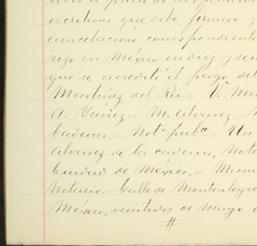 escritura que debe firmar y
cancelación correspondiente
en México en diez y seis
que se acredite el pago del
Martínez del Río = V.
A. = M. Alvarez =
= Not. pub.co = Un
Alvarez de la Cadena, Nota
Ciudad de México. =
Notario = Calle de Montealegre
México, veintidos de Mayo d
#